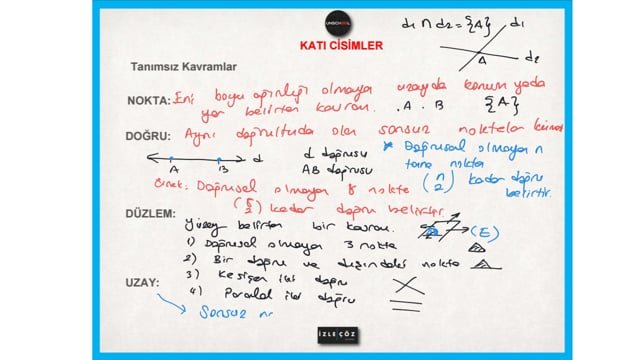 UNSCHOOL
d₁ ∩ d₂ = {A}
d₁
KATI CİSİMLER
A
d₂
Tanımsız Kavramlar
NOKTA: Eni boyu ağırlığı olmayan uzayda konum yada
yer belirten kavram. .A .B {A}
DOĞRU: Aynı doğrultuda olan sonsuz noktalar kümesi
A B d
d doğrusu
AB doğrusu
* Doğrusal olmayan n
tane nokta
(n 2) kadar doğru
belirtir.
Örnek: Doğrusal olmayan 8 nokta
kadar doğru belirtir.
DÜZLEM: yüzey belirten bir kavram. (E)
1) Doğrusal olmayan 3 nokta
2) Bir doğru ve dışındaki nokta
3) Kesişen iki doğru
UZAY:
4) Paralel iki doğru
Sonsuz
İZLE ÇÖZ